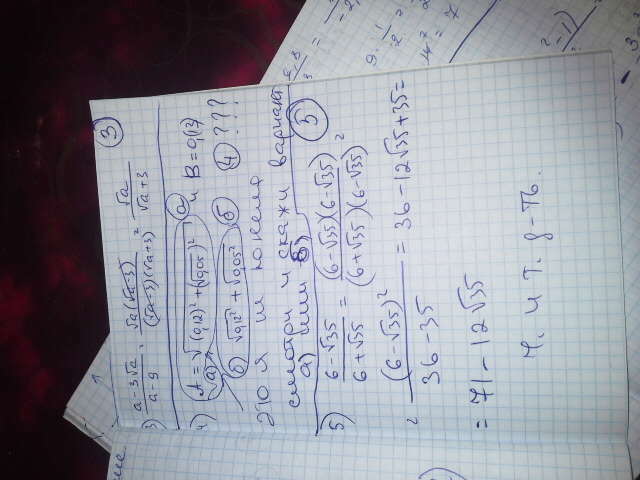 3
3) (a-3√a)/(a-9) = (√a(√a-3))/((√a-3)(√a+3)) = √a/(√a+3)
4) A = √(0,12)² + (√0,05)² и B = 0,13
а) а
б) √0,12² + √0,05² б 4 ???
Это я не поняла
смотри и скажи вариант
а) или б) 5
5) (6-√35)/(6+√35) = ((6-√35)(6-√35))/((6+√35)(6-√35)) =
= (6-√35)²/(36-35) = 36-12√35+35=
= 71-12√35
Ч. и т. д-ть.